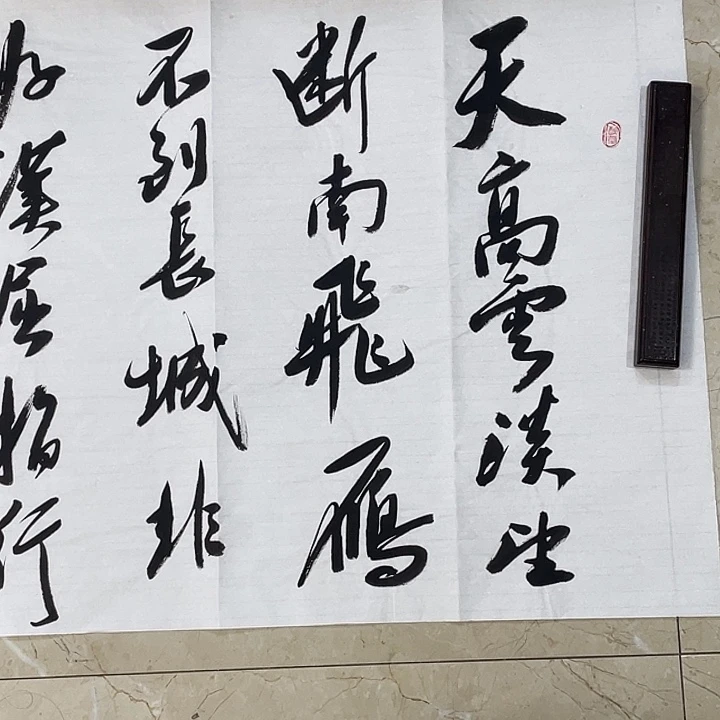 天高雲淡望
断南飛鴈
不到長城非
好漢屈指行